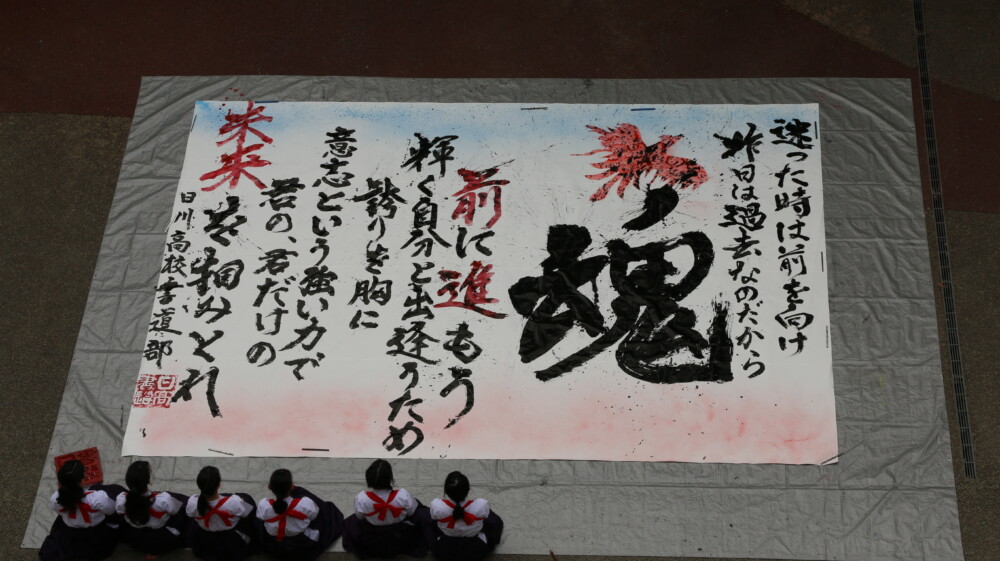 迷った時は前を向け
昨日は過去なのだから
魂
前に進もう
輝く自分と出逢うため
誇りを胸に
意志という強い力で
君の、君だけの
未来を掴みとれ
日川高校書道部